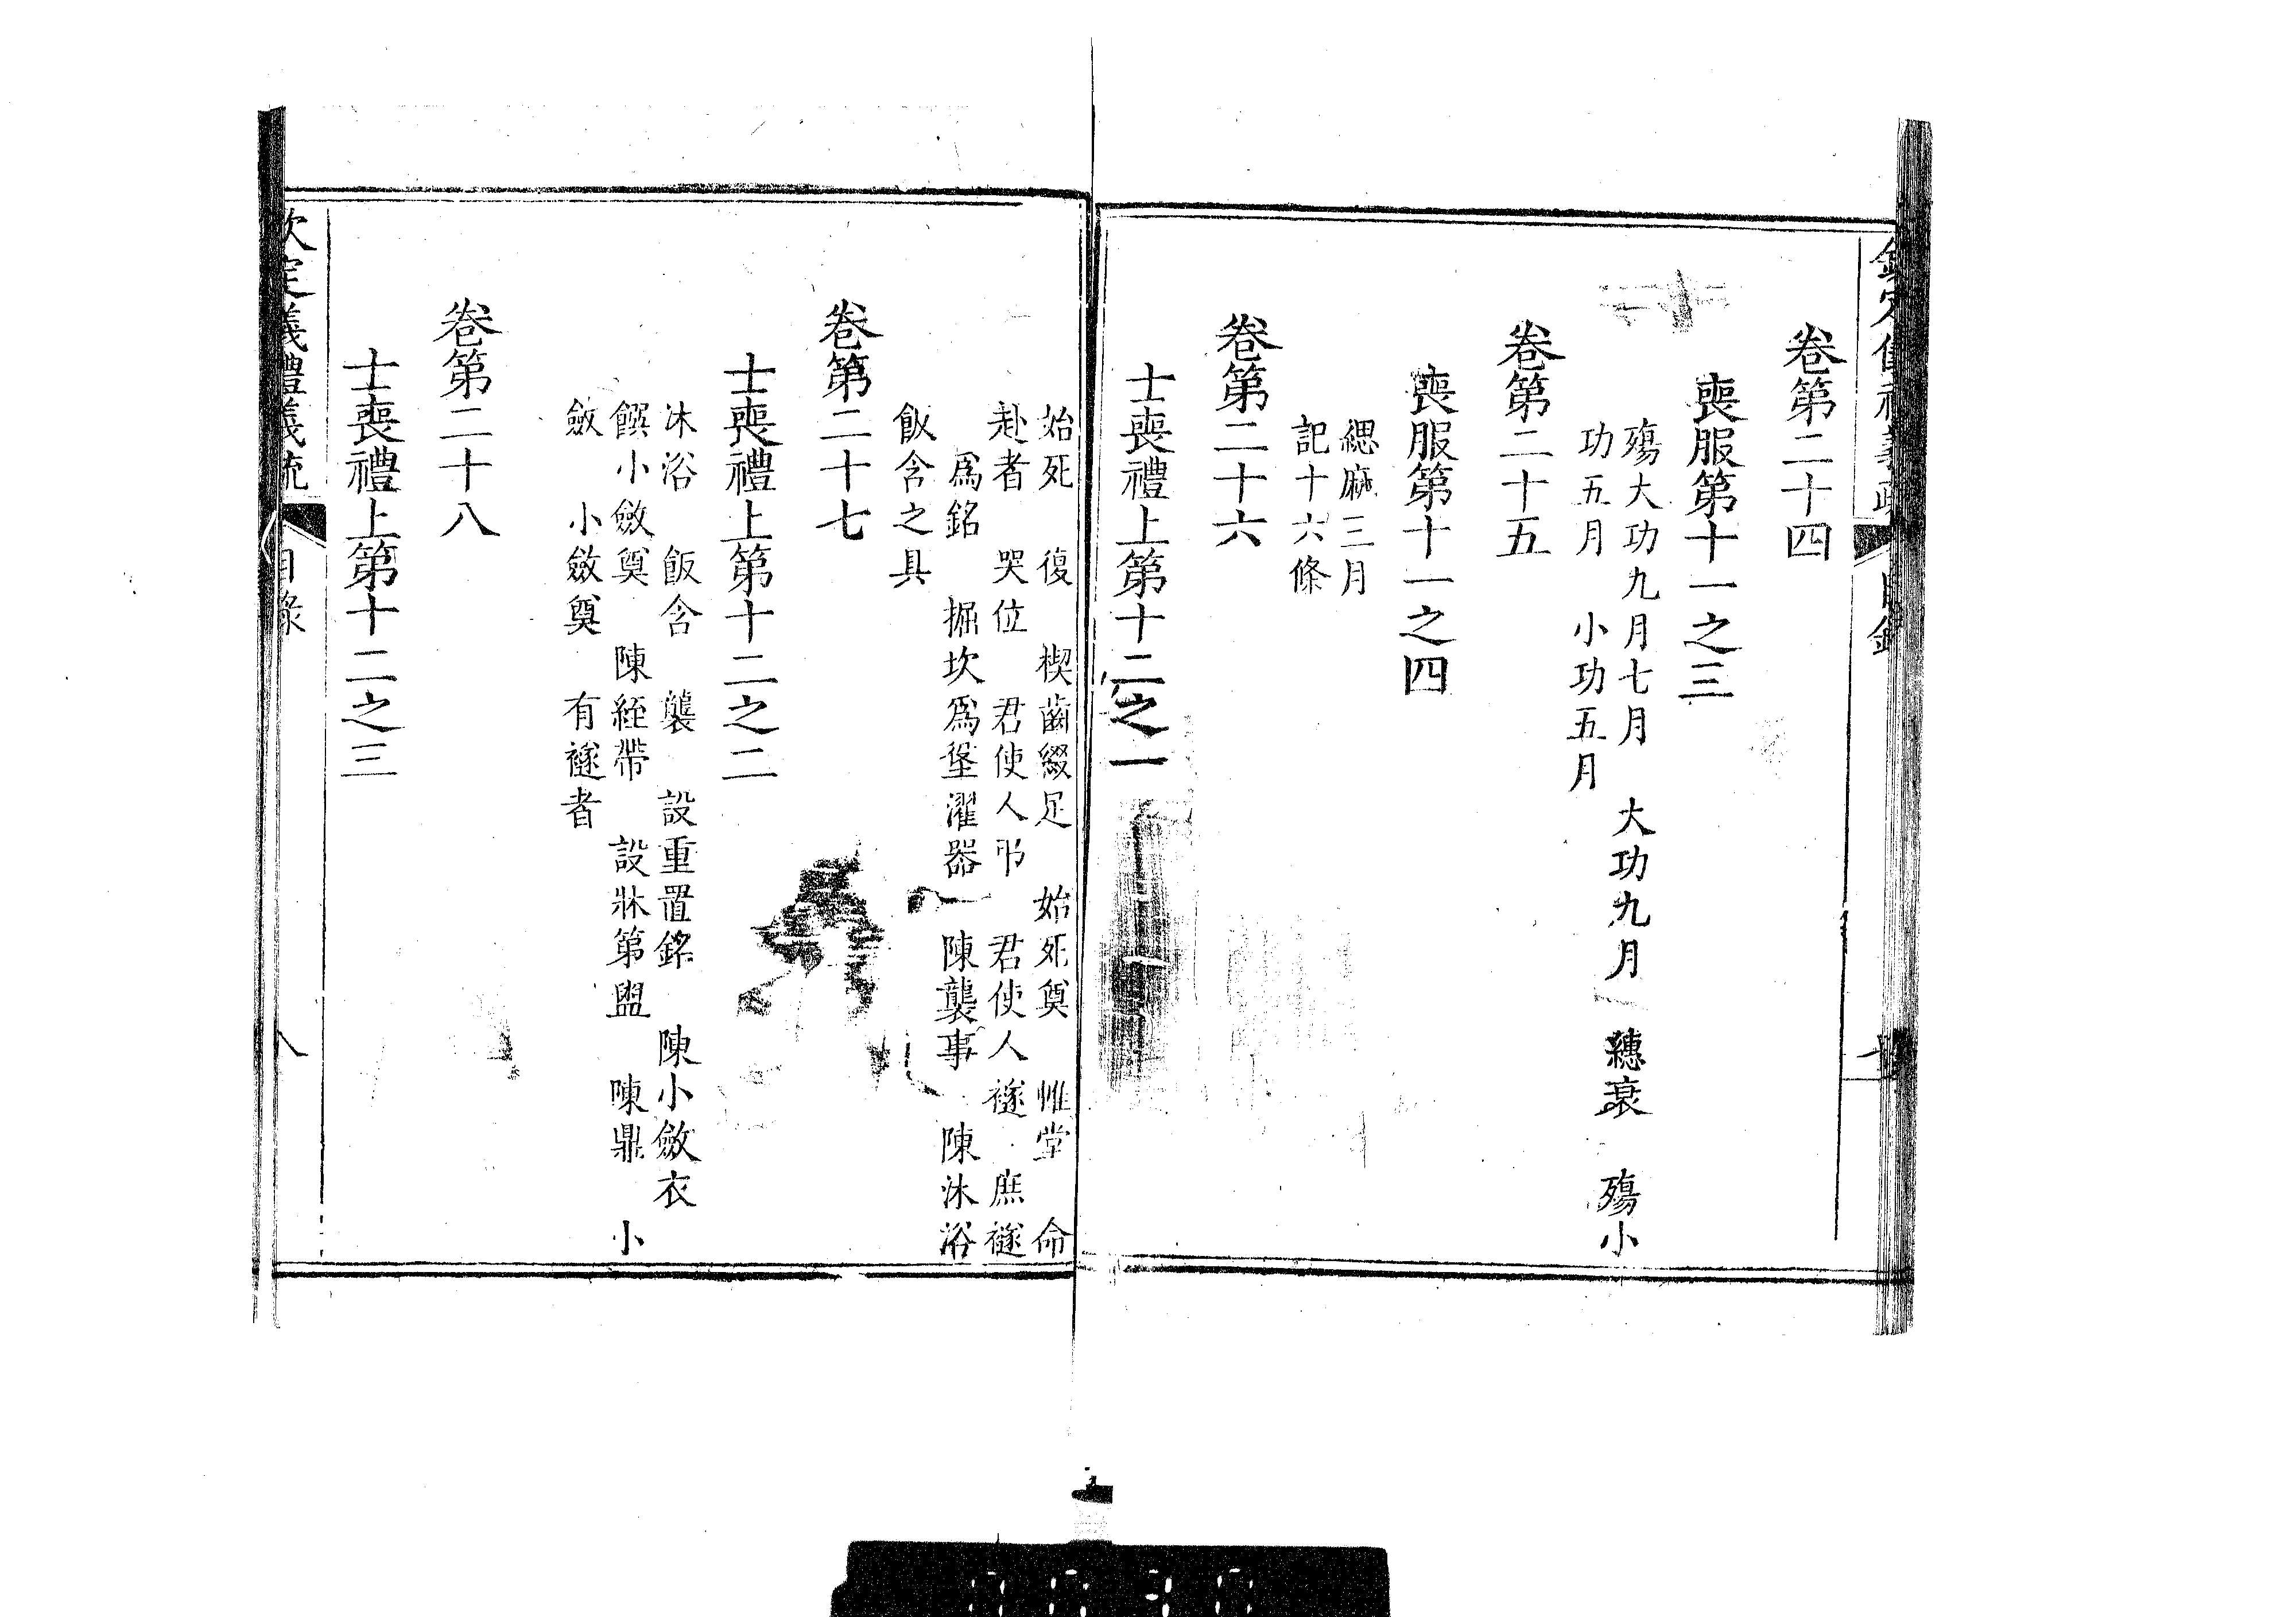 卷第二十四
喪服第十一之三
殤大功九月七月　大功九月　繐衰　殤小
功五月　小功五月
卷第二十五
喪服第十一之四
緦麻三月
記十六條
卷第二十六
士喪禮上第十二之一
始死　復　楔齒綴足　始死奠　帷堂　命
赴者　哭位　君使人弔　君使人襚　庶襚
爲銘　掘坎爲垼濯器　陳襲事　陳沐浴
飯含之具
卷第二十七
士喪禮上第十二之二
沐浴　飯含　襲　設重置銘　陳小斂衣
饌小斂奠　陳絰帶　設牀第盥　陳鼎　小
斂　小斂奠　有襚者
卷第二十八
士喪禮上第十二之三
欽定義禮義疏
目錄
八